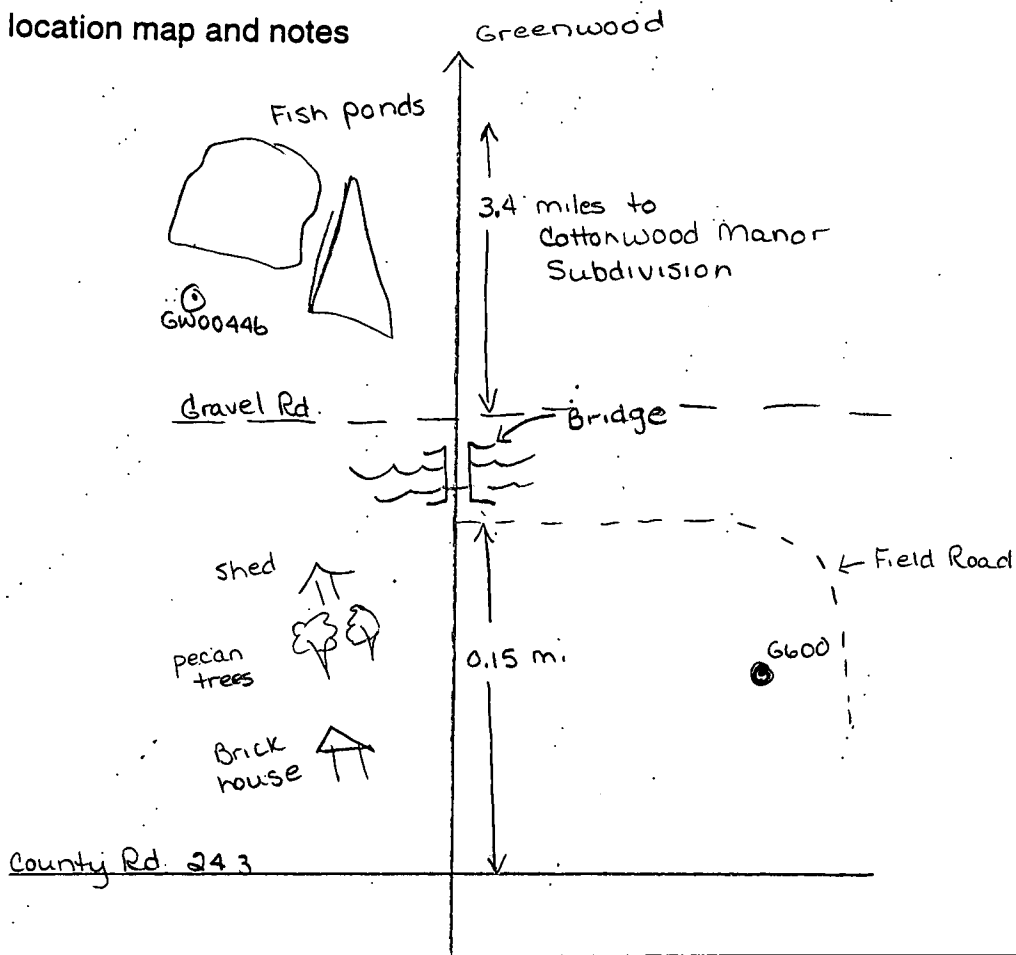 location map and notes
Greenwood
Fish ponds
3.4 miles to
Cottonwood Manor
Subdivision
GW00446
Gravel Rd.
Bridge
shed
Field Road
pecan
trees
0.15 mi.
G600
Brick
house
County Rd. 243